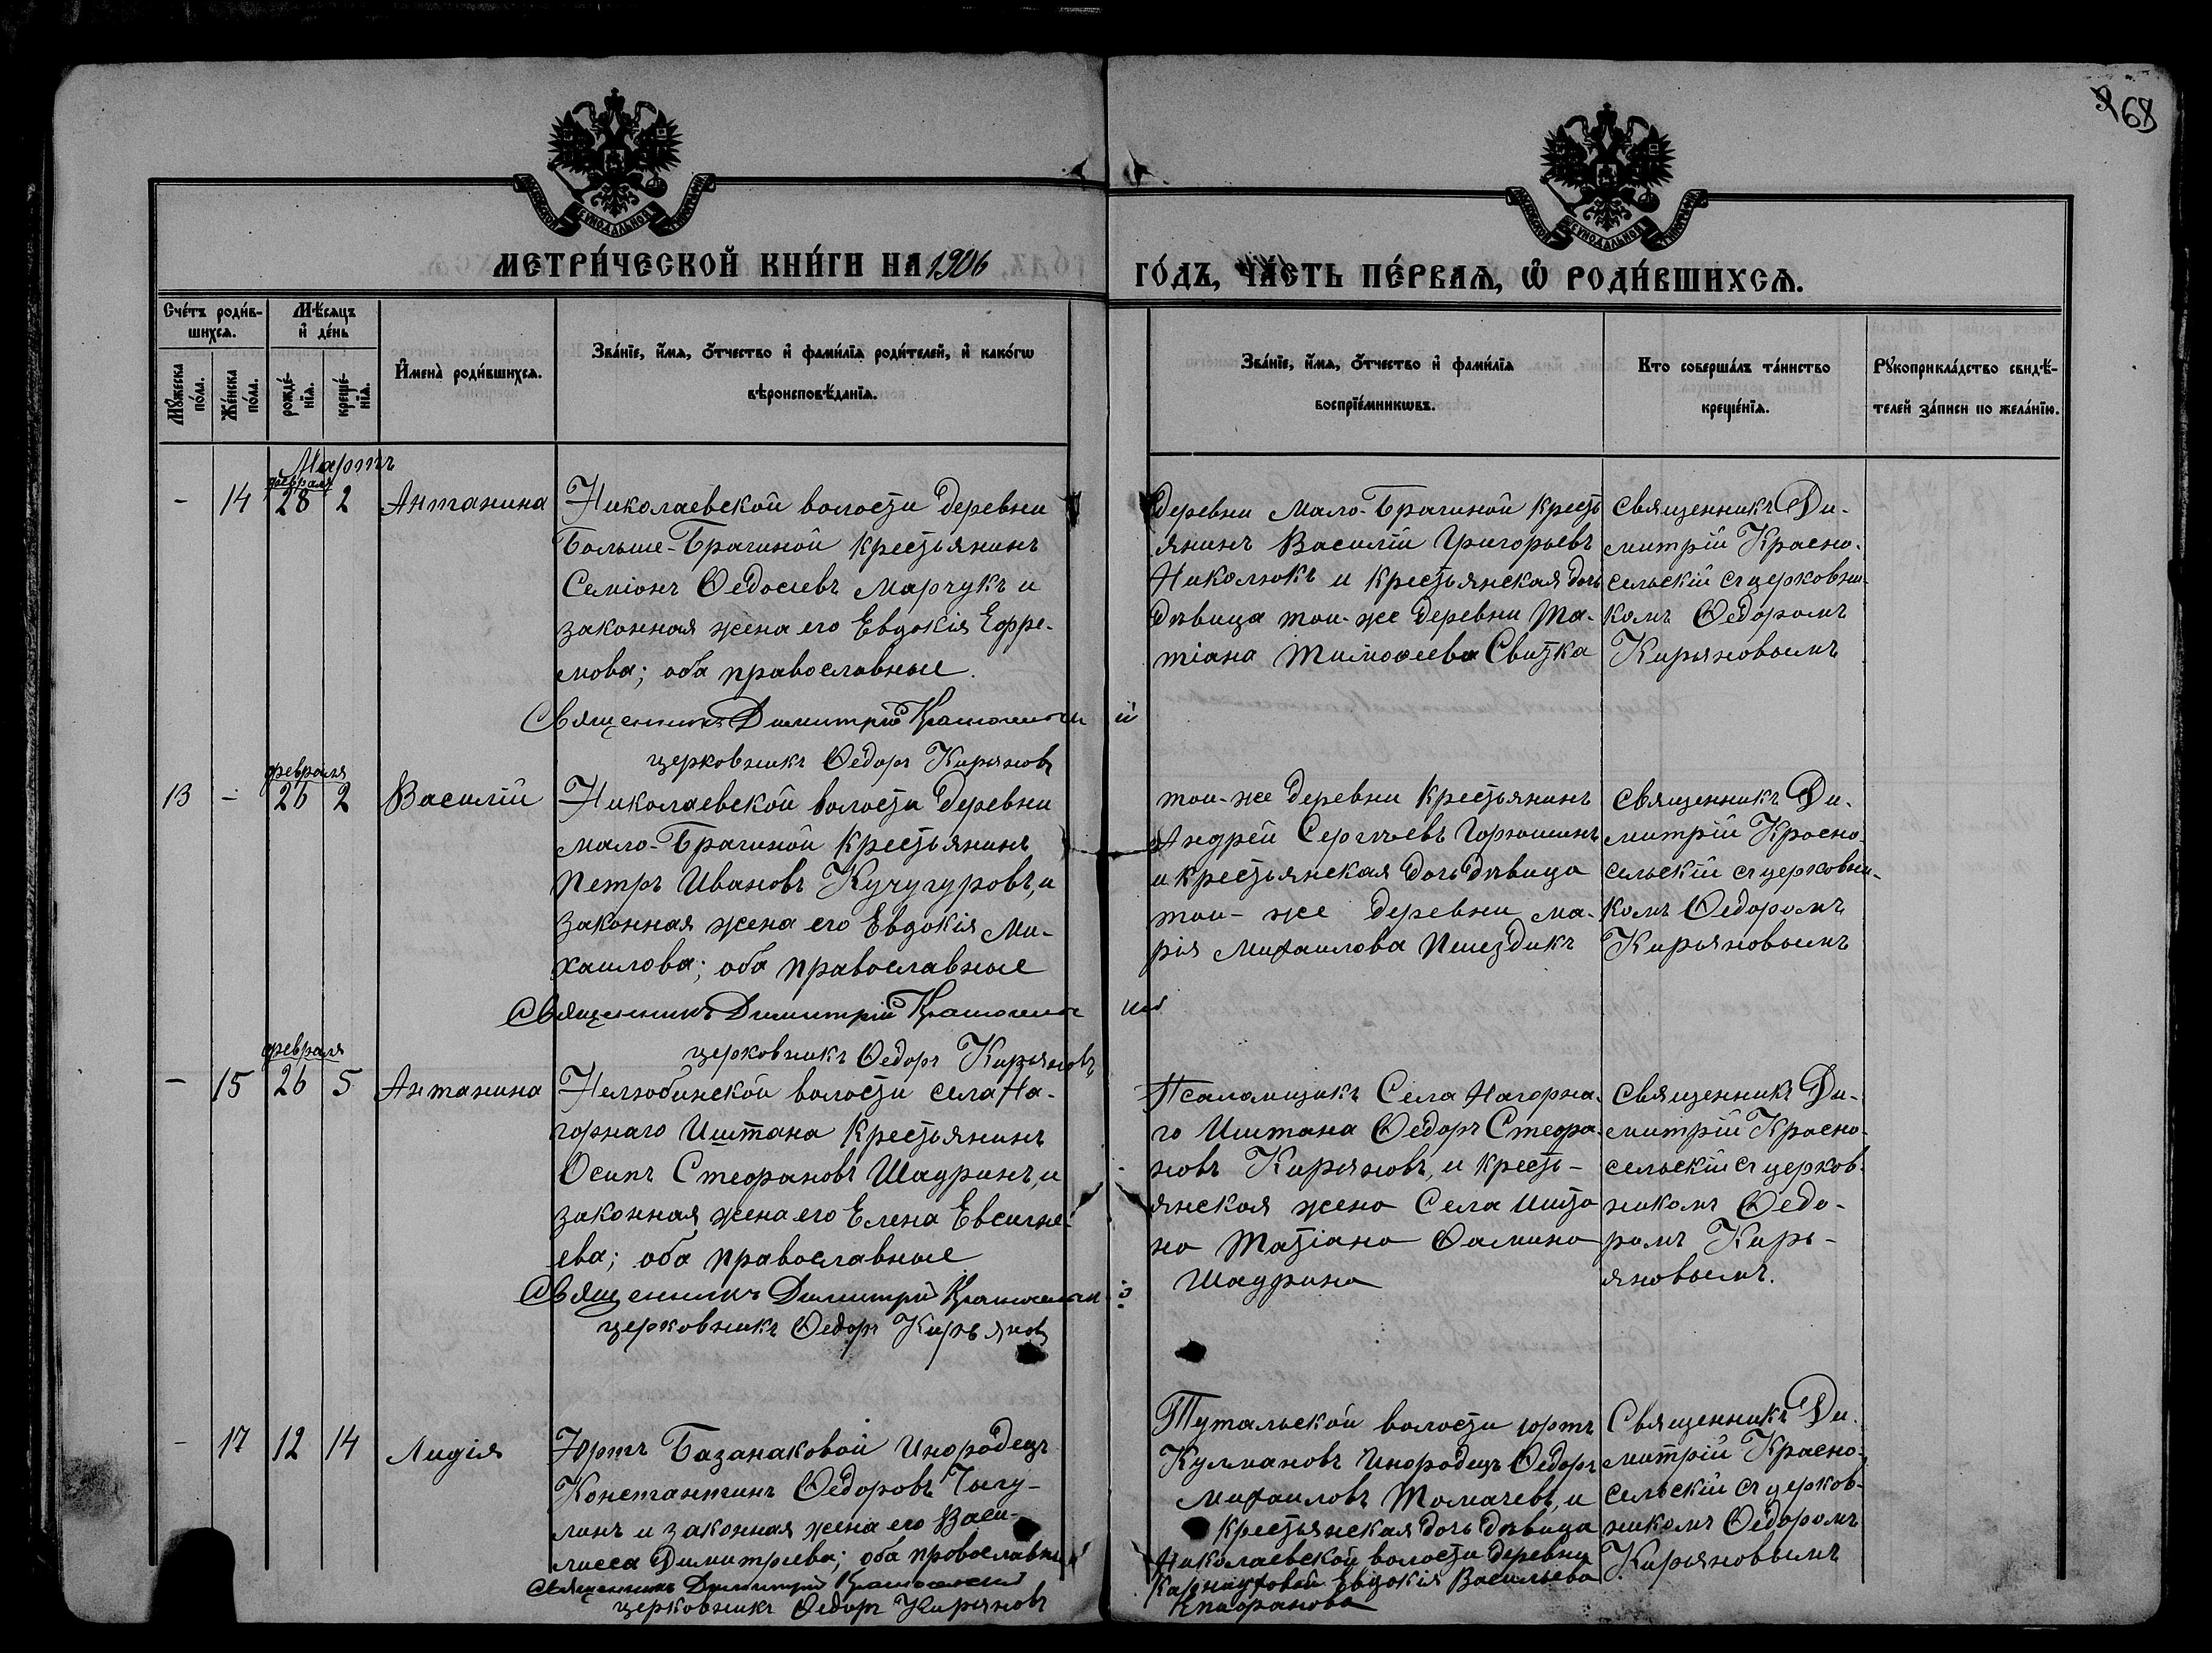 868
МЕТРИ́ЧЕСКОЙ КНИ́ГИ НА 1906
ГО́ДЪ, ЧА́СТЬ ПЕ́РВАѦ, Ѽ РОДИ́ВШИХСѦ.
Сче́тъ роди́в-
шихсѧ.
Мꙋ́жеска
по́ла.
Же́нска
по́ла.
Мѣ́сѧцъ
и҆ де́нь
рожде́-
нїѧ.
креще́-
нїѧ.
И҆мена̀ роди́вшихсѧ.
Зва́нїе, и҆́мѧ, ѻ҆́тчество и҆ фами́лїѧ роди́телей, и҆ како́гѡ
вѣроисповѣ́данїѧ.
Зва́нїе, и҆́мѧ, ѻ҆́тчество и҆ фами́лїѧ
воспрїе́мникѡвъ.
Кто соверша́лъ та́инство
креще́нїѧ.
Рꙋкоприкла́дство свидѣ́-
телей за́писи по жела́нїю.
Мартъ
февраля
- 14 28 2 Антанина
Николаевской волости деревни
Больше-Брагиной крестьянинъ
Семіонъ Ѳедосіевъ Марчукъ и
законная жена его Евдокія Ефре-
мова; оба православные.
Священникъ Димитрій Красносельскій
церковникъ Ѳедоръ Кирьяновъ
деревни Мало-Брагиной кресть
янинъ Василій Григорьевъ
Николюкъ и крестьянская дочь
дѣвица той-же деревни Та-
тіана Тимоѳеева Свитка
Священникъ Ди-
митрій Красно-
сельскій съ церковни-
комъ Ѳедоромъ
Кирьяновымъ
февраля
13 - 26 2 Василій
Николаевской волости деревни
Мало-Брагиной крестьянинъ
Петръ Ивановъ Кучугуровъ, и
законная жена его Евдокія Ми-
хаилова; оба православные
Священникъ Димитрій Красносельскій
церковникъ Ѳедоръ Кирьяновъ
той-же деревни крестьянинъ
Андрей Сергѣевъ Горюшинъ
и крестьянская дочь дѣвица
той-же деревни Ма-
рія Михаилова
Священникъ Ди-
митрій Красно-
сельскій съ церковни-
комъ Ѳедоромъ
Кирьяновымъ
февраля
- 15 26 5 Антанина
Нелюбинской волости села На-
горнаго Иштана крестьянинъ
Осипъ Стефановъ Шадринъ, и
законная жена его Елена Евсигне-
ева; оба православные
Священникъ Димитрій Красносельскій
церковникъ Ѳедоръ Кирьяновъ
Псаломщикъ Села Нагорна-
го Иштана Ѳедоръ Стефа-
новъ Кирьяновъ, и кресть-
янская жена Села Ишта
на Татіана Ѳомина
Шадрина
Священникъ Ди-
митрій Красно-
сельскій съ церков-
никомъ Ѳедо-
ромъ Кирь-
яновымъ.
- 17 12 14 Лидія
Юртъ Базанаковой Инородецъ
Константинъ Ѳедоровъ Тыгу-
линъ и законная жена его Васи-
лисса Димитріева; оба православны
Священникъ Димитрій Красносельскій
церковникъ Ѳедоръ Кирьяновъ
Тутальской волости юртъ
Кулмановъ Инородецъ Ѳедоръ
Михаиловъ Томачевъ, и
крестьянская дочь дѣвица
Николаевской волости деревни
Карнауховой Евдокія Васильева
Епифанова
Священникъ Ди-
митрій Красно-
сельскій съ церков-
никомъ Ѳедоромъ
Кирьяновымъ